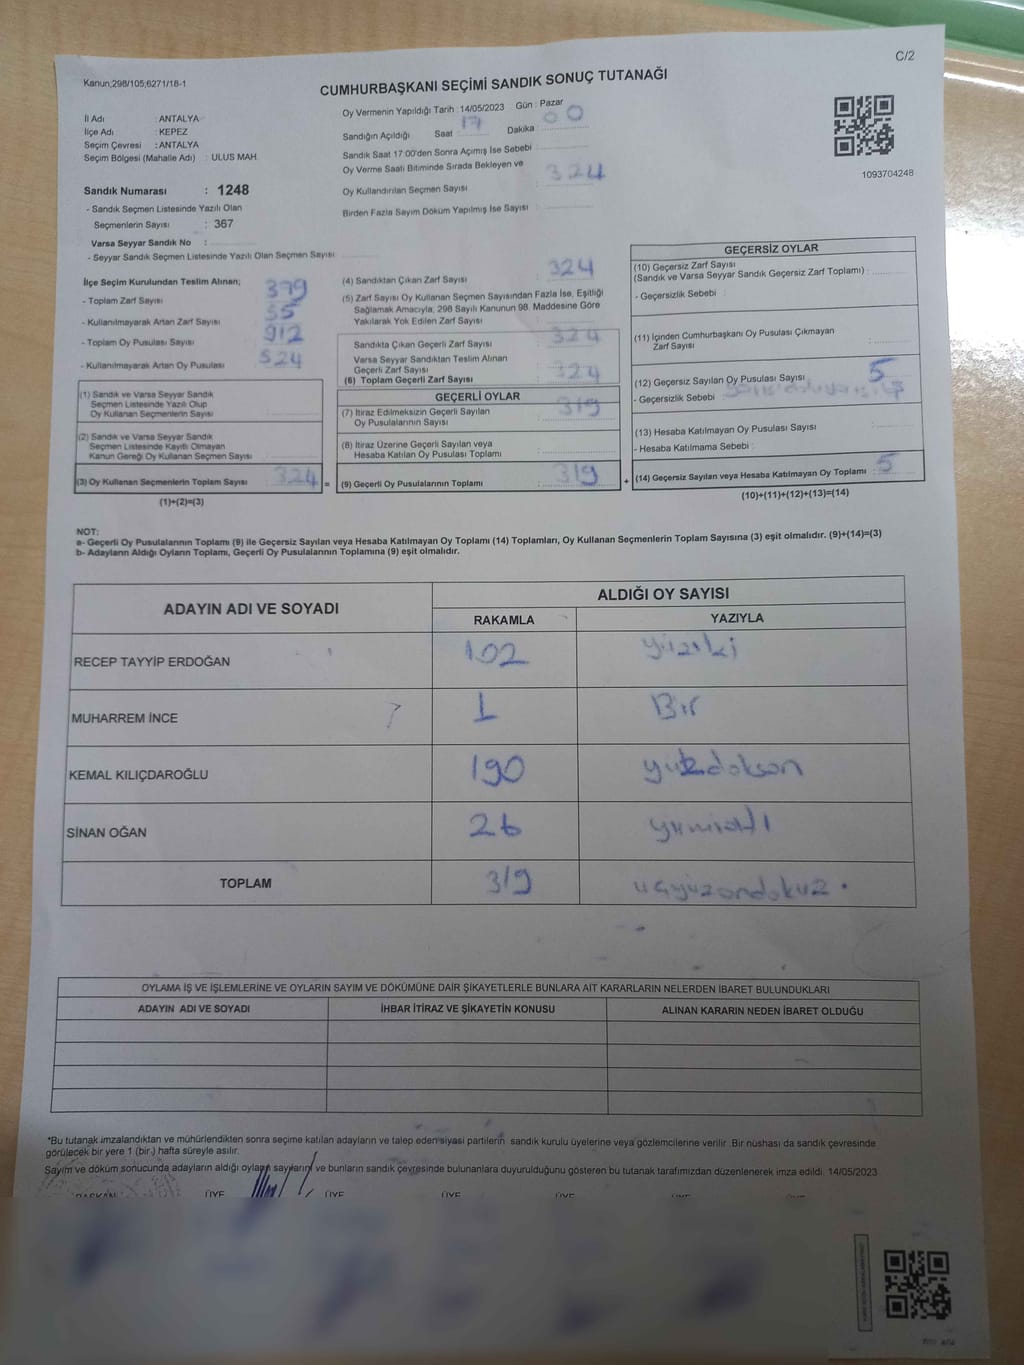 C/2
Kanun;298/105;6271/18-1
CUMHURBAŞKANI SEÇİMİ SANDIK SONUÇ TUTANAĞI
İl Adı : ANTALYA
İlçe Adı : KEPEZ
Seçim Çevresi : ANTALYA
Seçim Bölgesi (Mahalle Adı) : ULUS MAH.
Sandık Numarası : 1248
- Sandık Seçmen Listesinde Yazılı Olan
Seçmenlerin Sayısı : 367
Varsa Seyyar Sandık No :
- Seyyar Sandık Seçmen Listesinde Yazılı Olan Seçmen Sayısı
Oy Vermenin Yapıldığı Tarih : 14/05/2023 Gün : Pazar
Sandığın Açıldığı Saat : 17 Dakika : 00
Sandık Saat 17:00'den Sonra Açımış İse Sebebi :
Oy Verme Saati Bitiminde Sırada Bekleyen ve
Oy Kullandırılan Seçmen Sayısı : 324
Birden Fazla Sayım Döküm Yapılmış İse Sayısı :
1093704248
İlçe Seçim Kurulundan Teslim Alınan;
- Toplam Zarf Sayısı : 379
- Kullanılmayarak Artan Zarf Sayısı : 55
- Toplam Oy Pusulası Sayısı : 912
- Kullanılmayarak Artan Oy Pusulası : 524
(1) Sandık ve Varsa Seyyar Sandık
Seçmen Listesinde Yazılı Olup
Oy Kullanan Seçmenlerin Sayısı :
(2) Sandık ve Varsa Seyyar Sandık
Seçmen Listesinde Kayıtlı Olmayan
Kanun Gereği Oy Kullanan Seçmen Sayısı :
(3) Oy Kullanan Seçmenlerin Toplam Sayısı : 324 =
(1)+(2)=(3)
(4) Sandıktan Çıkan Zarf Sayısı : 324
(5) Zarf Sayısı Oy Kullanan Seçmen Sayısından Fazla İse, Eşitliği
Sağlamak Amacıyla, 298 Sayılı Kanunun 98. Maddesine Göre
Yakılarak Yok Edilen Zarf Sayısı :
Sandıkta Çıkan Geçerli Zarf Sayısı : 324
Varsa Seyyar Sandıktan Teslim Alınan
Geçerli Zarf Sayısı :
(6) Toplam Geçerli Zarf Sayısı : 324
GEÇERLİ OYLAR
(7) İtiraz Edilmeksizin Geçerli Sayılan
Oy Pusulalarının Sayısı : 319
(8) İtiraz Üzerine Geçerli Sayılan veya
Hesaba Katılan Oy Pusulası Toplamı :
(9) Geçerli Oy Pusulalarının Toplamı : 319 +
GEÇERSİZ OYLAR
(10) Geçersiz Zarf Sayısı
(Sandık ve Varsa Seyyar Sandık Geçersiz Zarf Toplamı) :
- Geçersizlik Sebebi :
(11) İçinden Cumhurbaşkanı Oy Pusulası Çıkmayan
Zarf Sayısı :
(12) Geçersiz Sayılan Oy Pusulası Sayısı : 5
- Geçersizlik Sebebi :
(13) Hesaba Katılmayan Oy Pusulası Sayısı :
- Hesaba Katılmama Sebebi :
(14) Geçersiz Sayılan veya Hesaba Katılmayan Oy Toplamı : 5
(10)+(11)+(12)+(13)=(14)
NOT:
a- Geçerli Oy Pusulalarının Toplamı (9) ile Geçersiz Sayılan veya Hesaba Katılmayan Oy Toplamı (14) Toplamları, Oy Kullanan Seçmenlerin Toplam Sayısına (3) eşit olmalıdır. (9)+(14)=(3)
b- Adayların Aldığı Oyların Toplamı, Geçerli Oy Pusulalarının Toplamına (9) eşit olmalıdır.
ADAYIN ADI VE SOYADI
ALDIĞI OY SAYISI
RAKAMLA YAZIYLA
RECEP TAYYİP ERDOĞAN 102 yüziki
MUHARREM İNCE 1 Bir
KEMAL KILIÇDAROĞLU 190 yüzdoksan
SİNAN OĞAN 26 yirmialtı
TOPLAM 319 üçyüzondokuz
OYLAMA İŞ VE İŞLEMLERİNE VE OYLARIN SAYIM VE DÖKÜMÜNE DAİR ŞİKAYETLERLE BUNLARA AİT KARARLARIN NELERDEN İBARET BULUNDUKLARI
ADAYIN ADI VE SOYADI İHBAR İTİRAZ VE ŞİKAYETİN KONUSU ALINAN KARARIN NEDEN İBARET OLDUĞU
*Bu tutanak imzalandıktan ve mühürlendikten sonra seçime katılan adayların ve talep eden siyasi partilerin sandık kurulu üyelerine veya gözlemcilerine verilir. Bir nüshası da sandık çevresinde
görülecek bir yere 1 (bir.) hafta süreyle asılır.
Sayım ve döküm sonucunda adayların aldığı oyların sayılarını ve bunların sandık çevresinde bulunanlara duyurulduğunu gösteren bu tutanak tarafımızdan düzenlenerek imza edildi. 14/05/2023
BAŞKAN ÜYE ÜYE ÜYE ÜYE ÜYE ÜYE